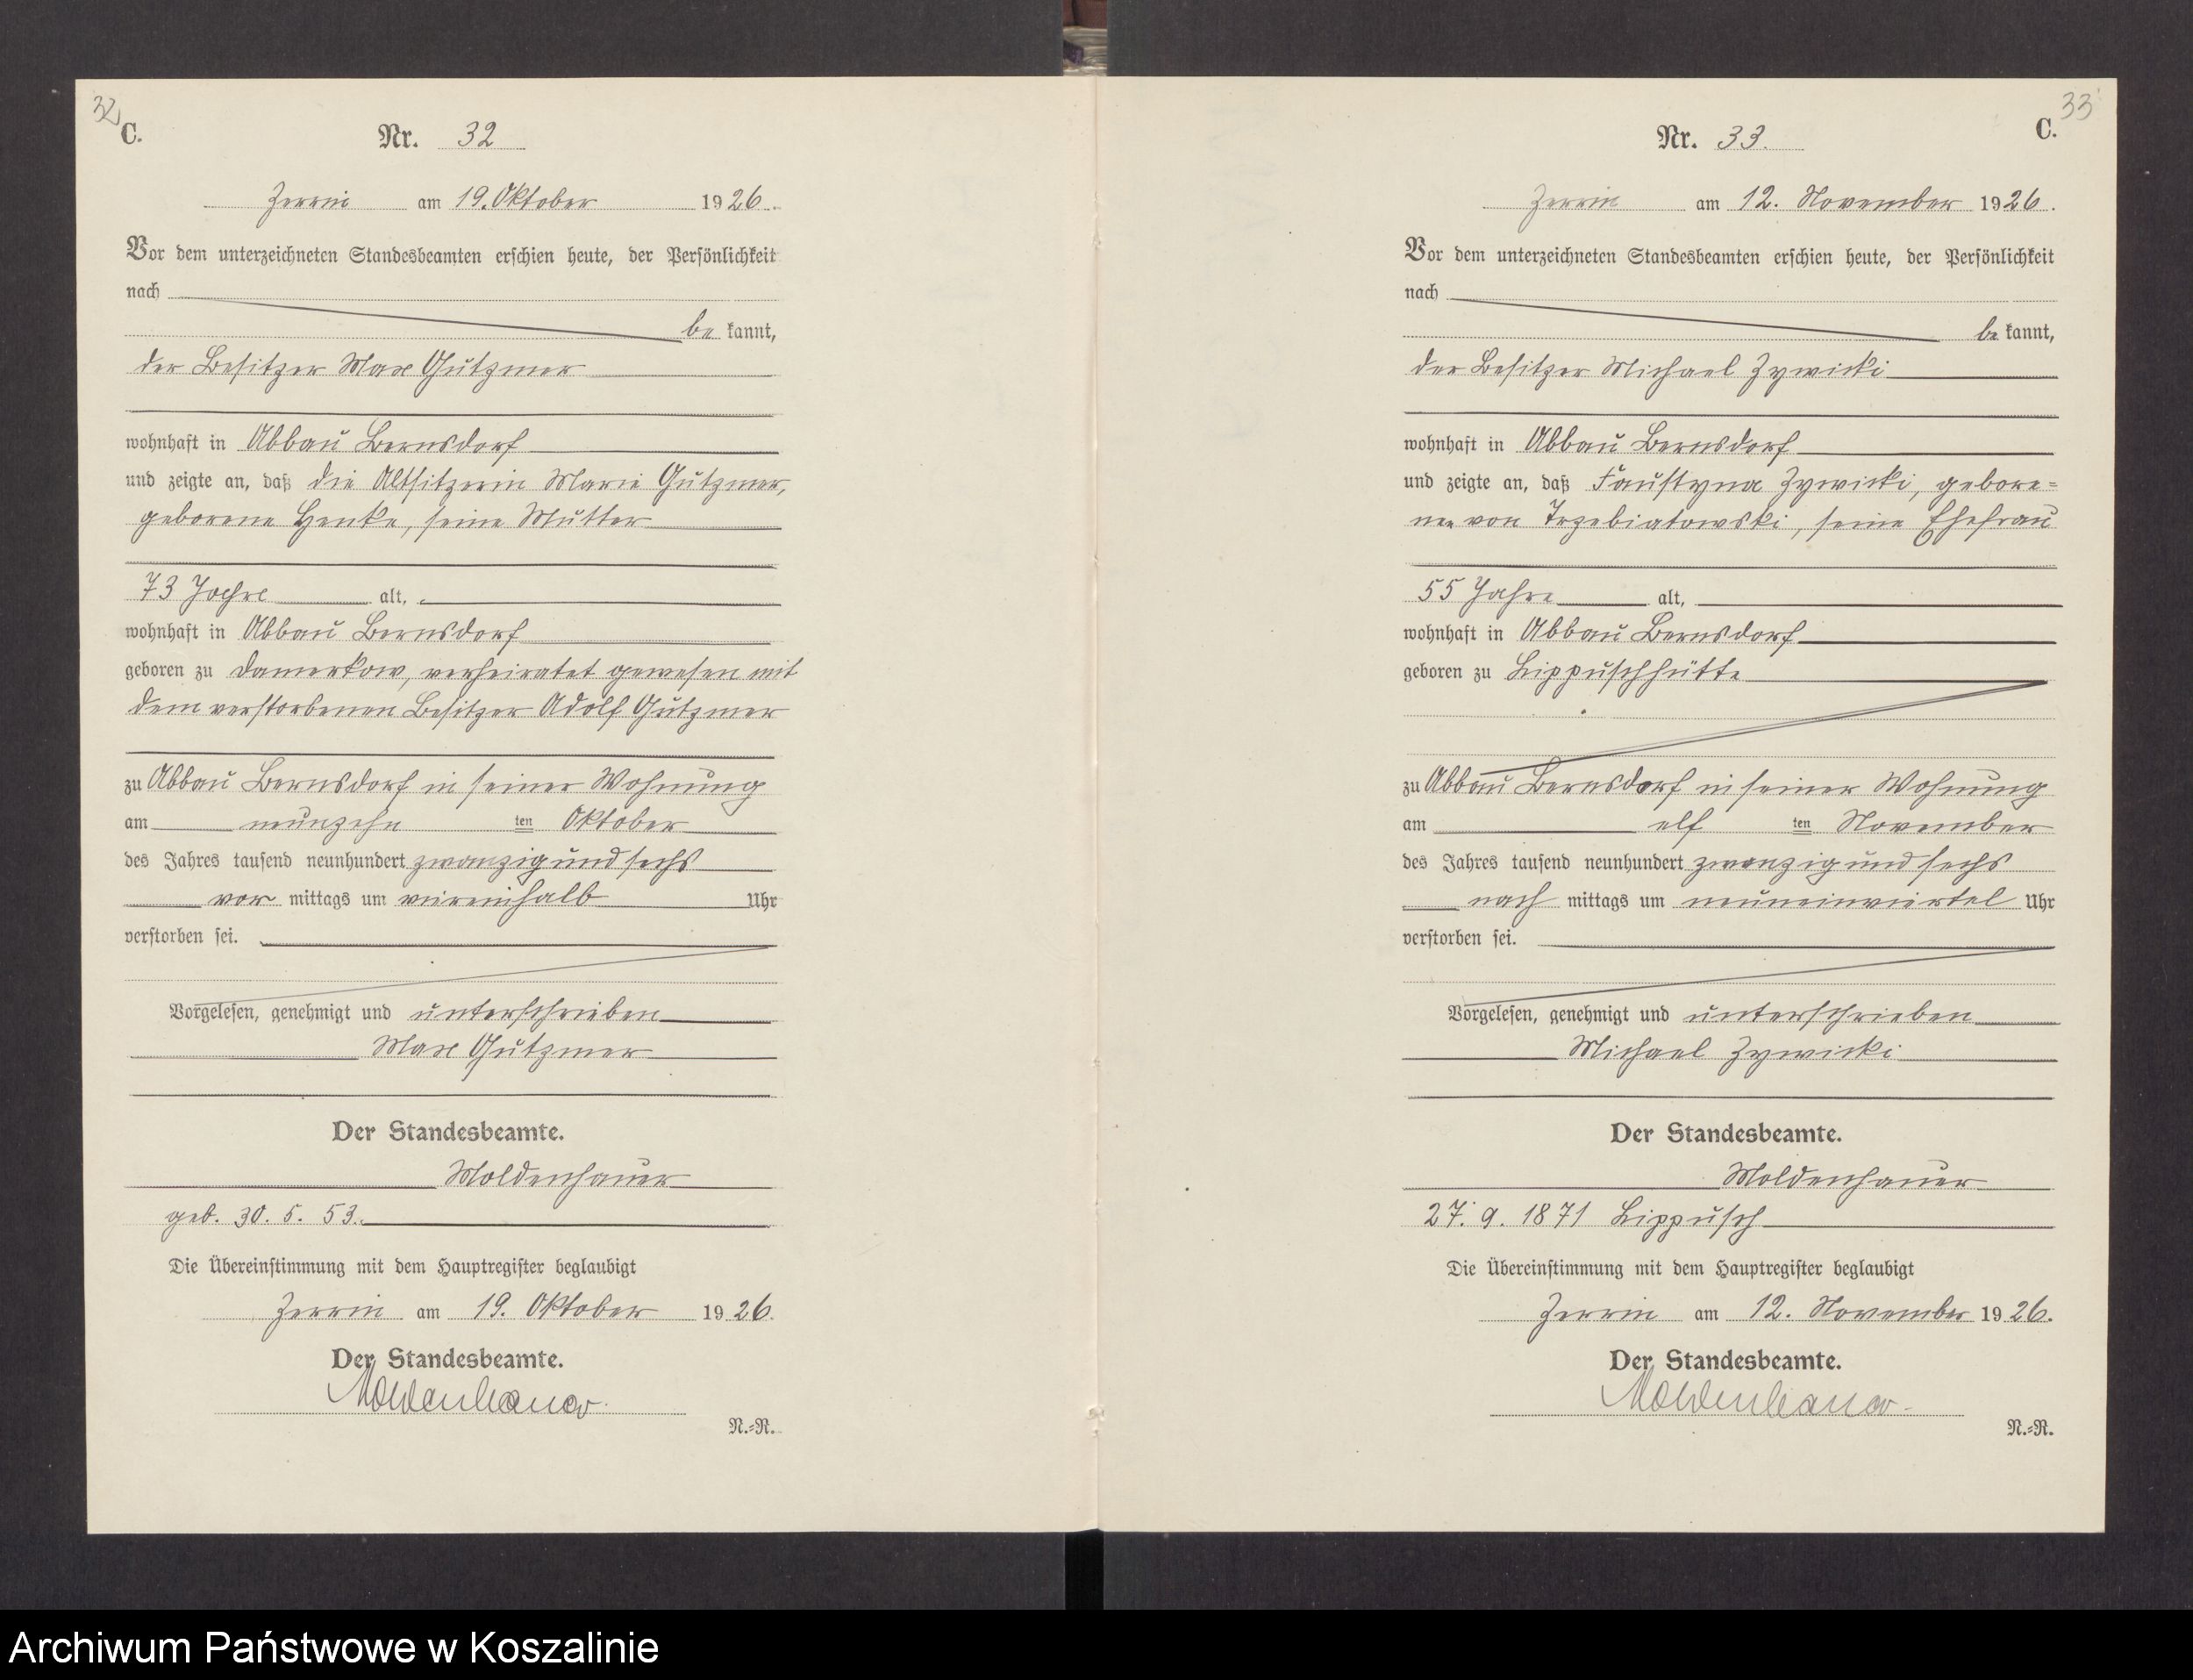 32
C.
Nr. 32
Zerrin am 19. Oktober 1926.
Vor dem unterzeichneten Standesbeamten erschien heute, der Persönlichkeit
nach
be kannt,
der Besitzer Max Gutzmer
wohnhaft in Abbau Bernsdorf
und zeigte an, daß die Altsitzerin Marie Gutzmer,
geborene Henke, seine Mutter
73 Jahre alt,
wohnhaft in Abbau Bernsdorf
geboren zu Damerkow, verheiratet gewesen mit
dem verstorbenen Besitzer Adolf Gutzmer
zu Abbau Bernsdorf in seiner Wohnung
am neunzehn ten Oktober
des Jahres tausend neunhundert zwanzig und sechs
vor mittags um viereinhalb Uhr
verstorben sei.
Vorgelesen, genehmigt und unterschrieben
Max Gutzmer
Der Standesbeamte.
Moldenhauer
geb. 30. 5. 53.
Die Übereinstimmung mit dem Hauptregister beglaubigt
Zerrin am 19. Oktober 1926.
Der Standesbeamte.
Moldenhauer.
N.=R.
33
C.
Nr. 33.
Zerrin am 12. November 1926.
Vor dem unterzeichneten Standesbeamten erschien heute, der Persönlichkeit
nach
be kannt,
der Besitzer Michael Zywicki
wohnhaft in Abbau Bernsdorf
und zeigte an, daß Faustyna Zywicki, gebore=
ne von Trzebiatowski, seine Ehefrau
55 Jahre alt,
wohnhaft in Abbau Bernsdorf
geboren zu Lippuschhütte
zu Abbau Bernsdorf in seiner Wohnung
am elf ten November
des Jahres tausend neunhundert zwanzig und sechs
nach mittags um neuneinviertel Uhr
verstorben sei.
Vorgelesen, genehmigt und unterschrieben
Michael Zywicki
Der Standesbeamte.
Moldenhauer
27. 9. 1871 Lippusch
Die Übereinstimmung mit dem Hauptregister beglaubigt
Zerrin am 12. November 1926.
Der Standesbeamte.
Moldenhauer.
N.=R.
Archiwum Państwowe w Koszalinie